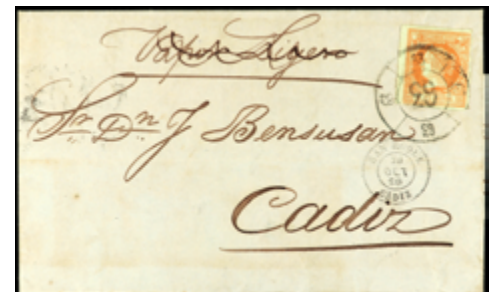 Vapor Ligero
Sr Dn J Bensusan
63
63
Cadiz